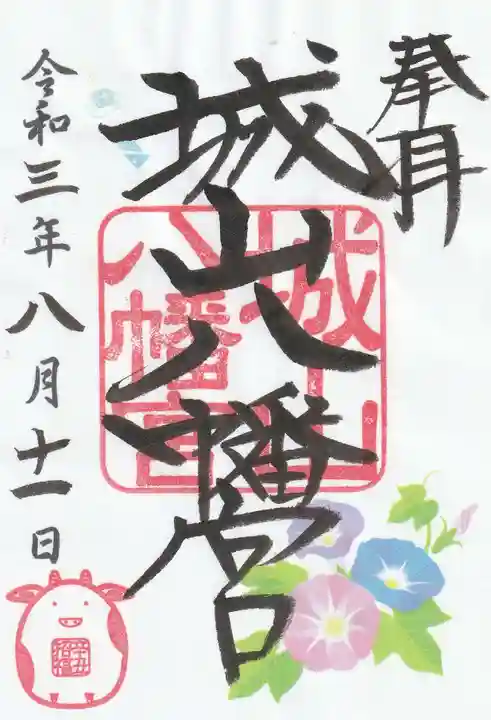 奉拝
城山八幡宮
城山
八幡宮
令和三年八月十一日